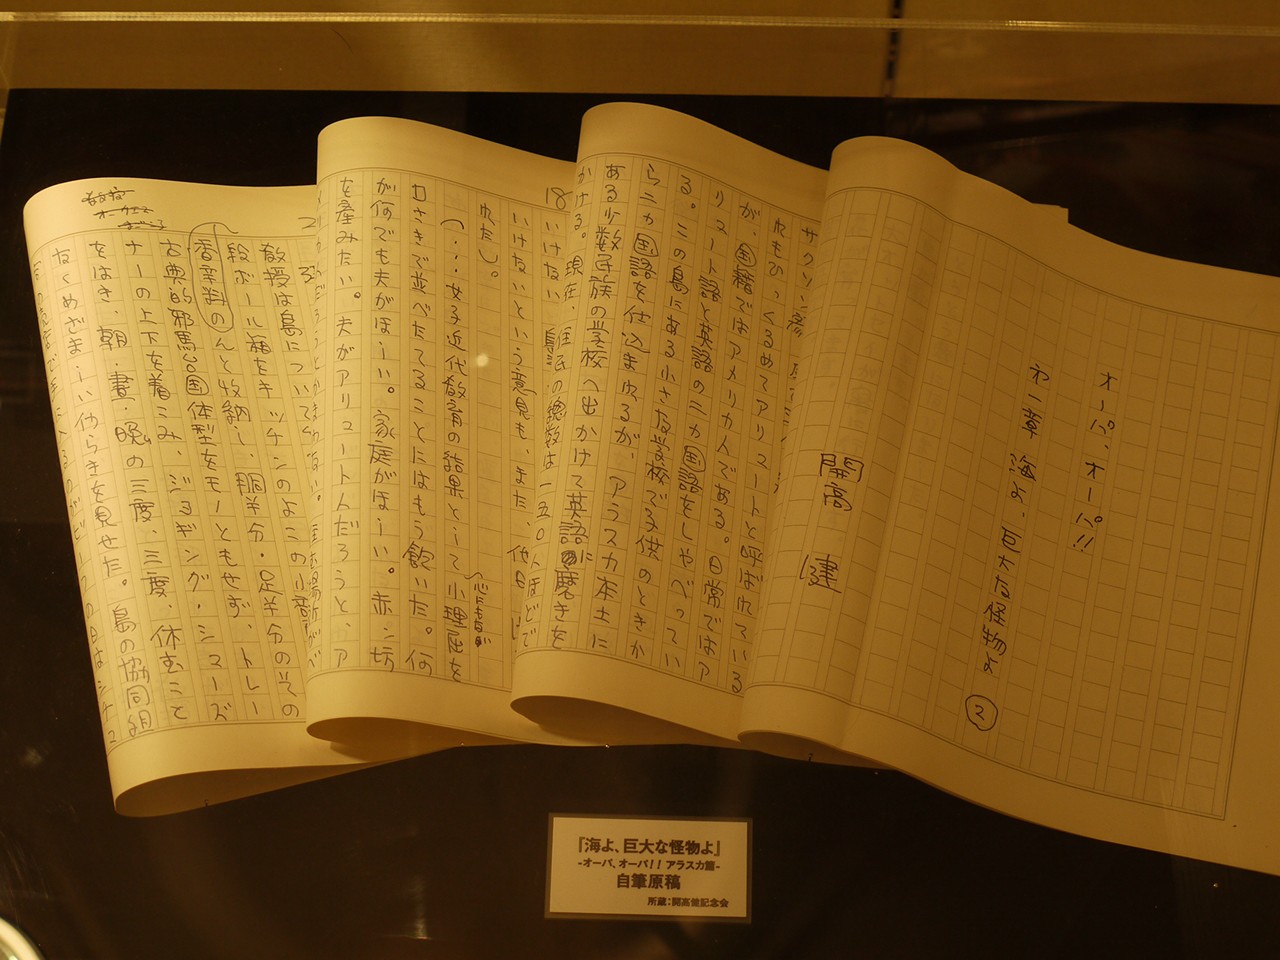 オーパ、オーパ!!
第一章 海よ、巨大な怪物よ
②
開高 健
れもひっくるめてアリュートと呼ばれている
が、国籍ではアメリカ人である。日常ではア
リュート語と英語の二カ国語をしゃべってい
る。この島にある小さな学校で子供のときか
ら二カ国語を仕込まれるが、アラスカ本土に
ある少数民族の学校へ出かけて英語に磨きを
かける。現在、住民の総数は一五〇人ほどで
18
いけない
いけないという意見も、また、
れたし。
(…女子近代教育の結果として小理屈を
口さきで並べたてることにはもう飽いた。何
が何でも夫がほしい。家庭がほしい。赤ン坊
を産みたい。夫がアリュート人だろうと、ア
教授は島についてから
段ボール箱をキッチンのよこの小部
香辛料のんと収納し、胴半分・足半分のその
古典的邪馬台国体型をモノともせず、トレー
ナーの上下を着こみ、ジョギング・シューズ
をはき、朝・昼・晩の三度、三度、休むこと
なくめざましい働らきを見せた。島の協同組
『海よ、巨大な怪物よ』
-オーパ、オーパ!! アラスカ篇-
自筆原稿
所蔵:開高健記念会